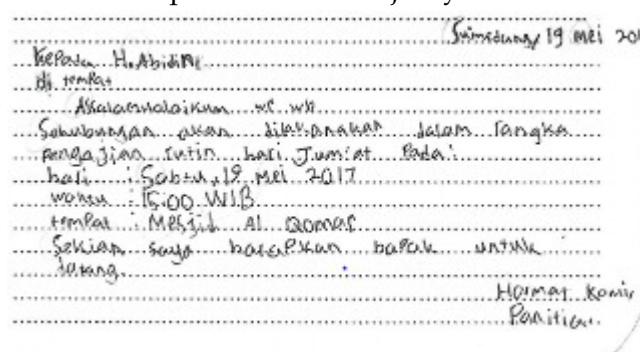 Sumedang, 19 Mei 201
Kepada H. Abidin
di tempat
Assalamualaikum wr wb
Sehubungan akan dilaksanakan dalam rangka
pengajian rutin hari Jum'at Pada:
hari : Sabtu, 19 Mei 2017
waktu : 15:00 WIB
tempat : Mesjid Al Qomar
Sekian saya harapkan bapak untuk
datang.
Hormat Kami
Panitia